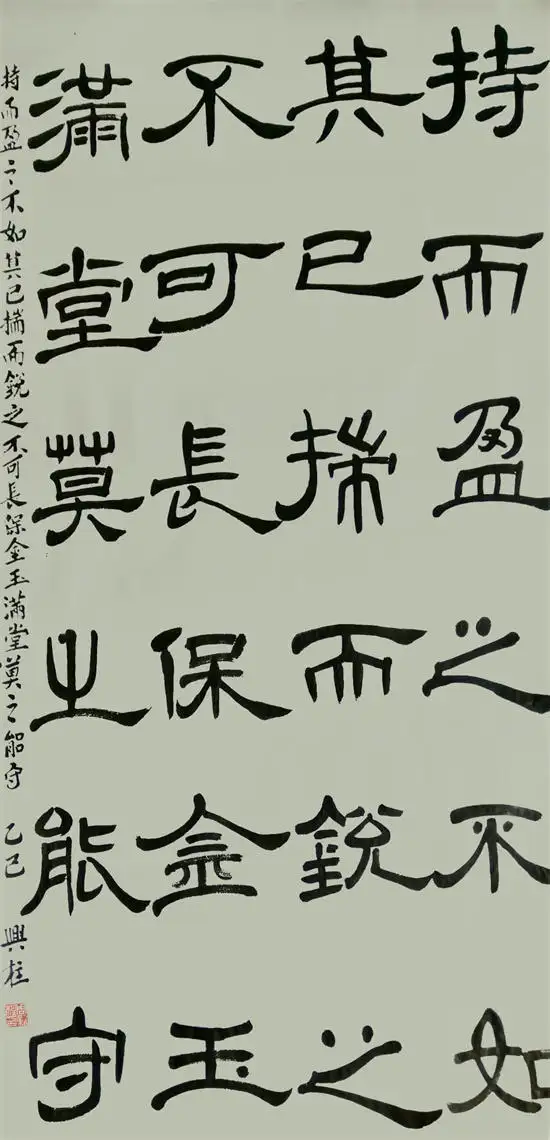 持而盈之不如
其已揣而銳之
不可長保金玉
滿堂莫之能守
持而盈之不如其已揣而銳之不可長保金玉滿堂莫之能守 乙巳 興柱